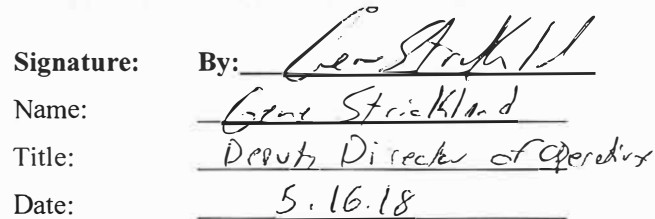 Signature: By: Gene Strickland
Name: Gene Strickland
Title: Deputy Director of Operations
Date: 5.16.18